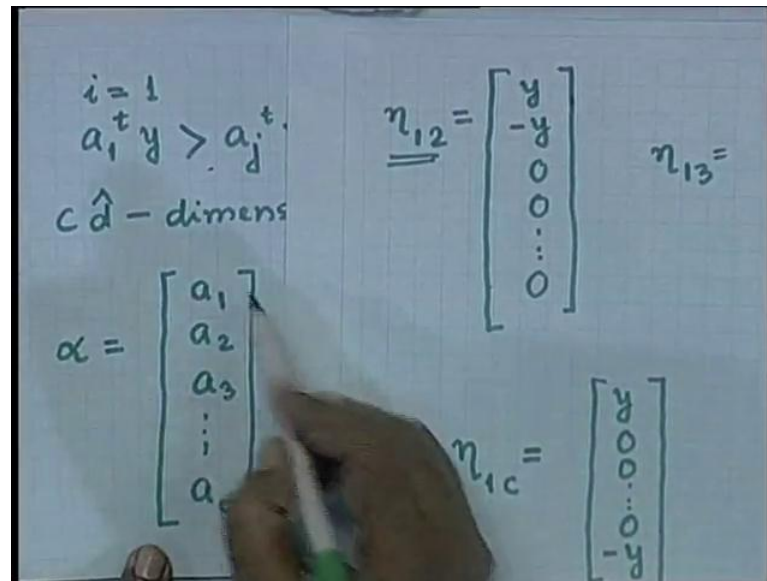 i = 1
a₁ᵗ y > aⱼᵗ
c d̂ – dimens
α = [ a₁
a₂
a₃
⋮
a ]
η₁₂ = [ y
-y
0
0
⋮
0 ]
η₁₃ =
η₁c = [ y
0
0
⋮
0
-y ]